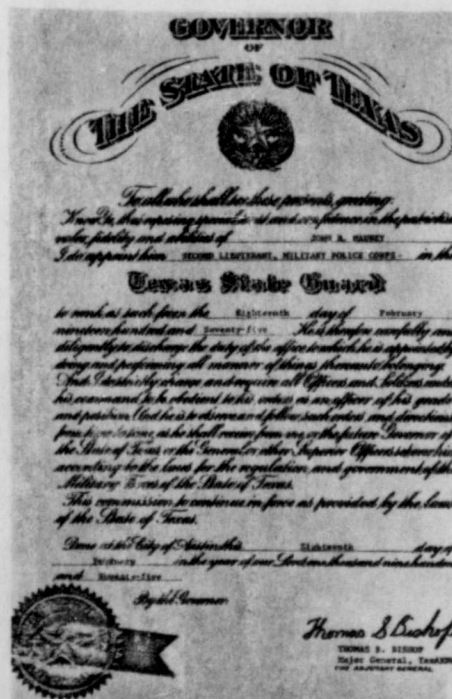 GOVERNOR
OF
THE STATE OF TEXAS
To all who shall see these presents, greeting:
Know Ye, that reposing special and confidence in the patriotism
valor, fidelity and abilities of JOHN R.
I do appoint him SECOND LIEUTENANT, MILITARY POLICE CORPS - in the
Texas State Guard
to rank as such from the Eighteenth day of February
nineteen hundred and Seventy-five He is therefore carefully and
diligently to discharge the duty of the office to which he is appointed by
doing and performing all manner of things thereunto belonging.
And I do strictly charge and require all Officers and Soldiers under
his command to be obedient to his orders as an officer of his grade
and position. And he is to observe and follow such orders and directions
from time to time, as he shall receive from me, or the future Governor of
the State of Texas or the General or other Superior Officers above him
according to the laws for the regulation and government of the
Military Forces of the State of Texas.
This commission to continue in force as provided by the laws
of the State of Texas.
Done at the City of Austin this Eighteenth day of
February in the year of our Lord one thousand nine hundred
and Seventy-five
By the Governor:
Thomas S Bishop
THOMAS S. BISHOP
Major General, TexARNG
THE ADJUTANT GENERAL